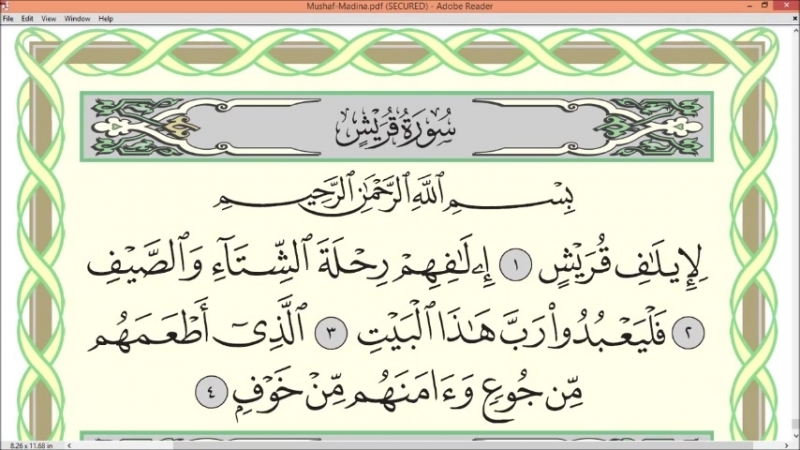 Mushaf-Madina.pdf (SECURED) - Adobe Reader
File Edit View Window Help
سُورَةُ قُرَيْشٍ
بِسْمِ ٱللَّهِ ٱلرَّحْمَٰنِ ٱلرَّحِيمِ
لِإِيلَٰفِ قُرَيْشٍ ١ إِۦلَٰفِهِمْ رِحْلَةَ ٱلشِّتَآءِ وَٱلصَّيْفِ
٢ فَلْيَعْبُدُوا۟ رَبَّ هَٰذَا ٱلْبَيْتِ ٣ ٱلَّذِىٓ أَطْعَمَهُم
مِّن جُوعٍ وَءَامَنَهُم مِّنْ خَوْفٍۭ ٤
8.26 x 11.68 in